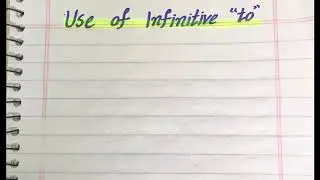 Use of Infinitive "to"